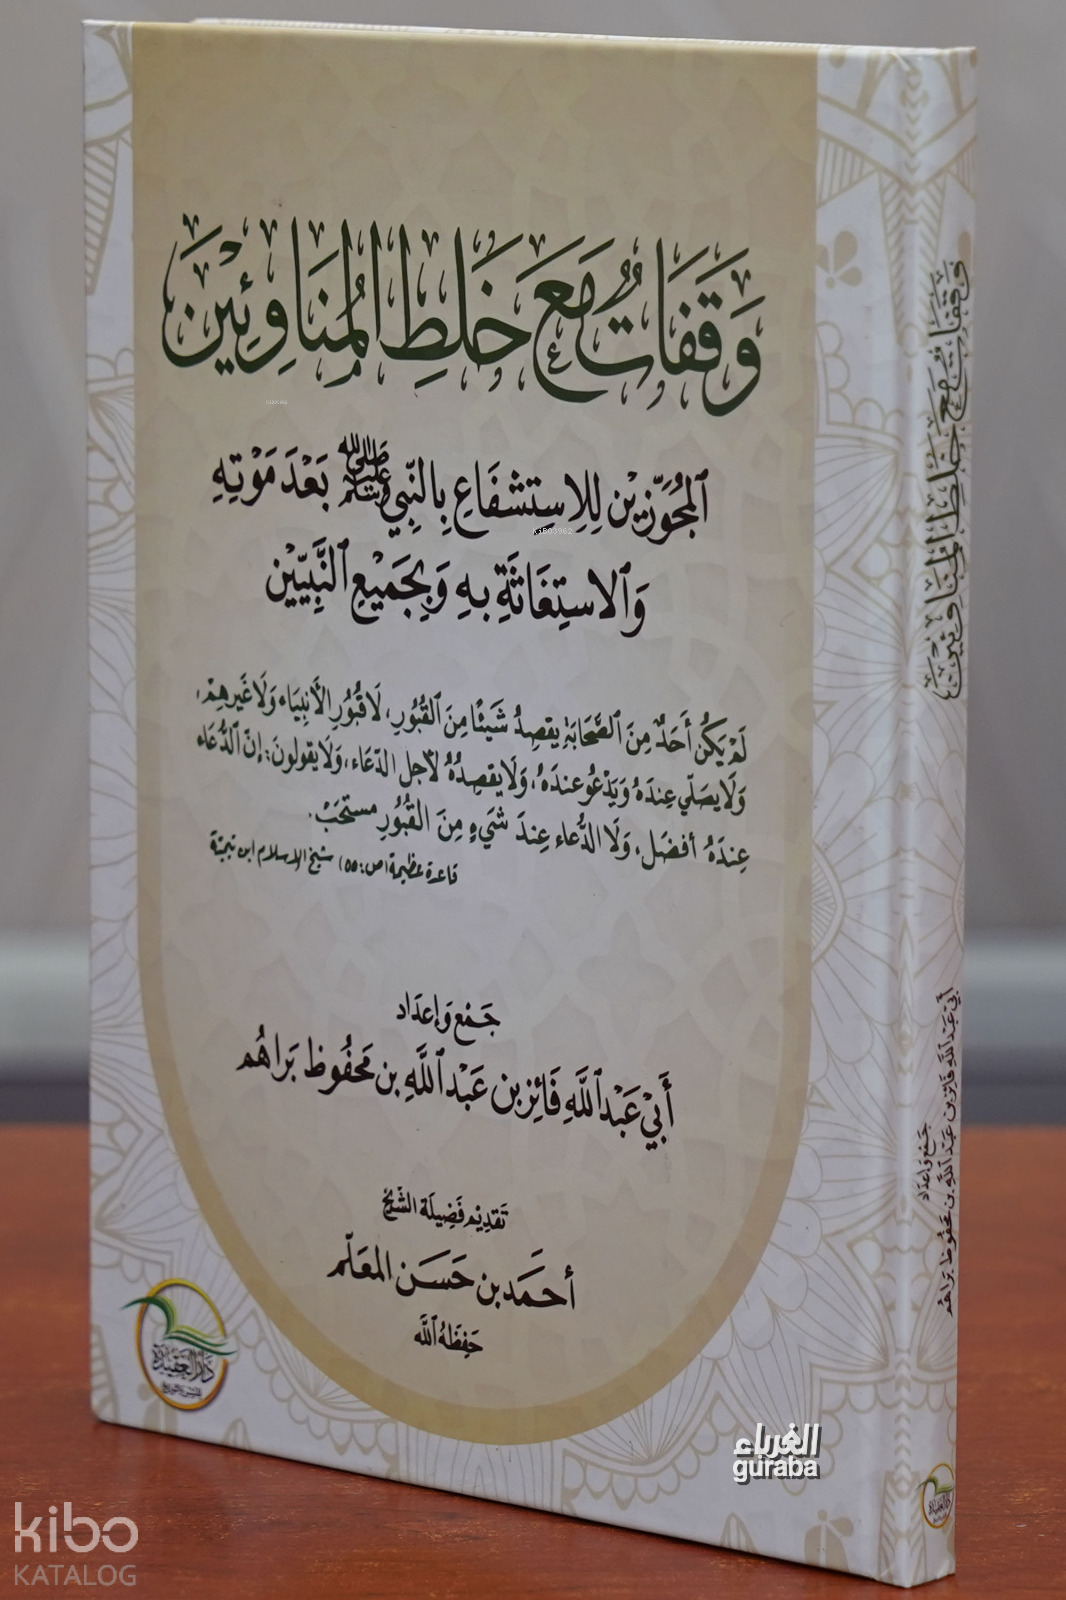 وَقَفَاتٌ مَعَ خَلَطِ المُنَاوِئِينَ
المُجَوِّزِيْن لِلاِسْتِشْفَاعِ بِالنَّبِي ﷺ بَعْدَ مَوْتِهِ
وَالاسْتِغَاثَةِ بِهِ وَبِجَمِيْعِ النَّبِيّيْن
لَمْ يَكُنْ أَحَدٌ مِنَ الصَّحَابَةِ يقصِدُ شَيْئًا مِنَ القُبُورِ، لَا قُبُورِ الأَنبِيَاء وَلَا غَيرهِمْ،
وَلَا يصَلّي عِندَهُ وَيَدْعُو عندَهُ، وَلَا يقصِدُهُ لأجل الدّعَاء، وَلَا يقولونَ: إنّ الدُّعَاء
عِندَهُ أفضَل، وَلَا الدُّعاء عِندَ شَيءٍ مِنَ القُبُورِ مستحَبّ.
قاعدة عظيمة (ص: ٥٥) شيخ الإسلام ابن تيميّة
جَمْع وَإعدَاد
أَبِيْ عَبْد اللَّهِ فَائِز بن عَبْد اللَّهِ بن مَحفُوظ بَرَاهُم
تَقدِيْم فَضِيلَة الشّيخ
أحمَد بن حَسَن المعَلّم
حَفِظَهُ اللَّه
دَارُ العَقِيدَة
للنشر والتوزيع
وَقَفَاتٌ مَعَ خَلَطِ المُنَاوِئِينَ
جَمْع وَإعدَاد
أَبِيْ عَبْد اللَّهِ فَائِز بن عَبْد اللَّهِ بن مَحفُوظ بَرَاهُم
دَارُ العَقِيدَة
الغرباء
guraba
kibo
KATALOG